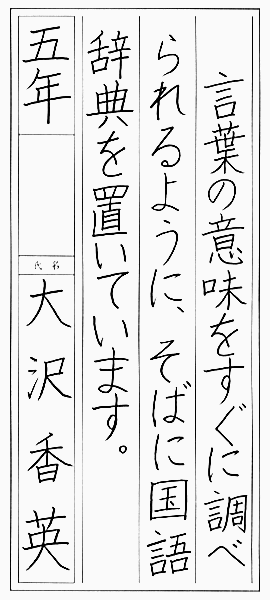 言葉の意味をすぐに調べ
られるように、そばに国語
辞典を置いています。
五年
氏名
大沢香英